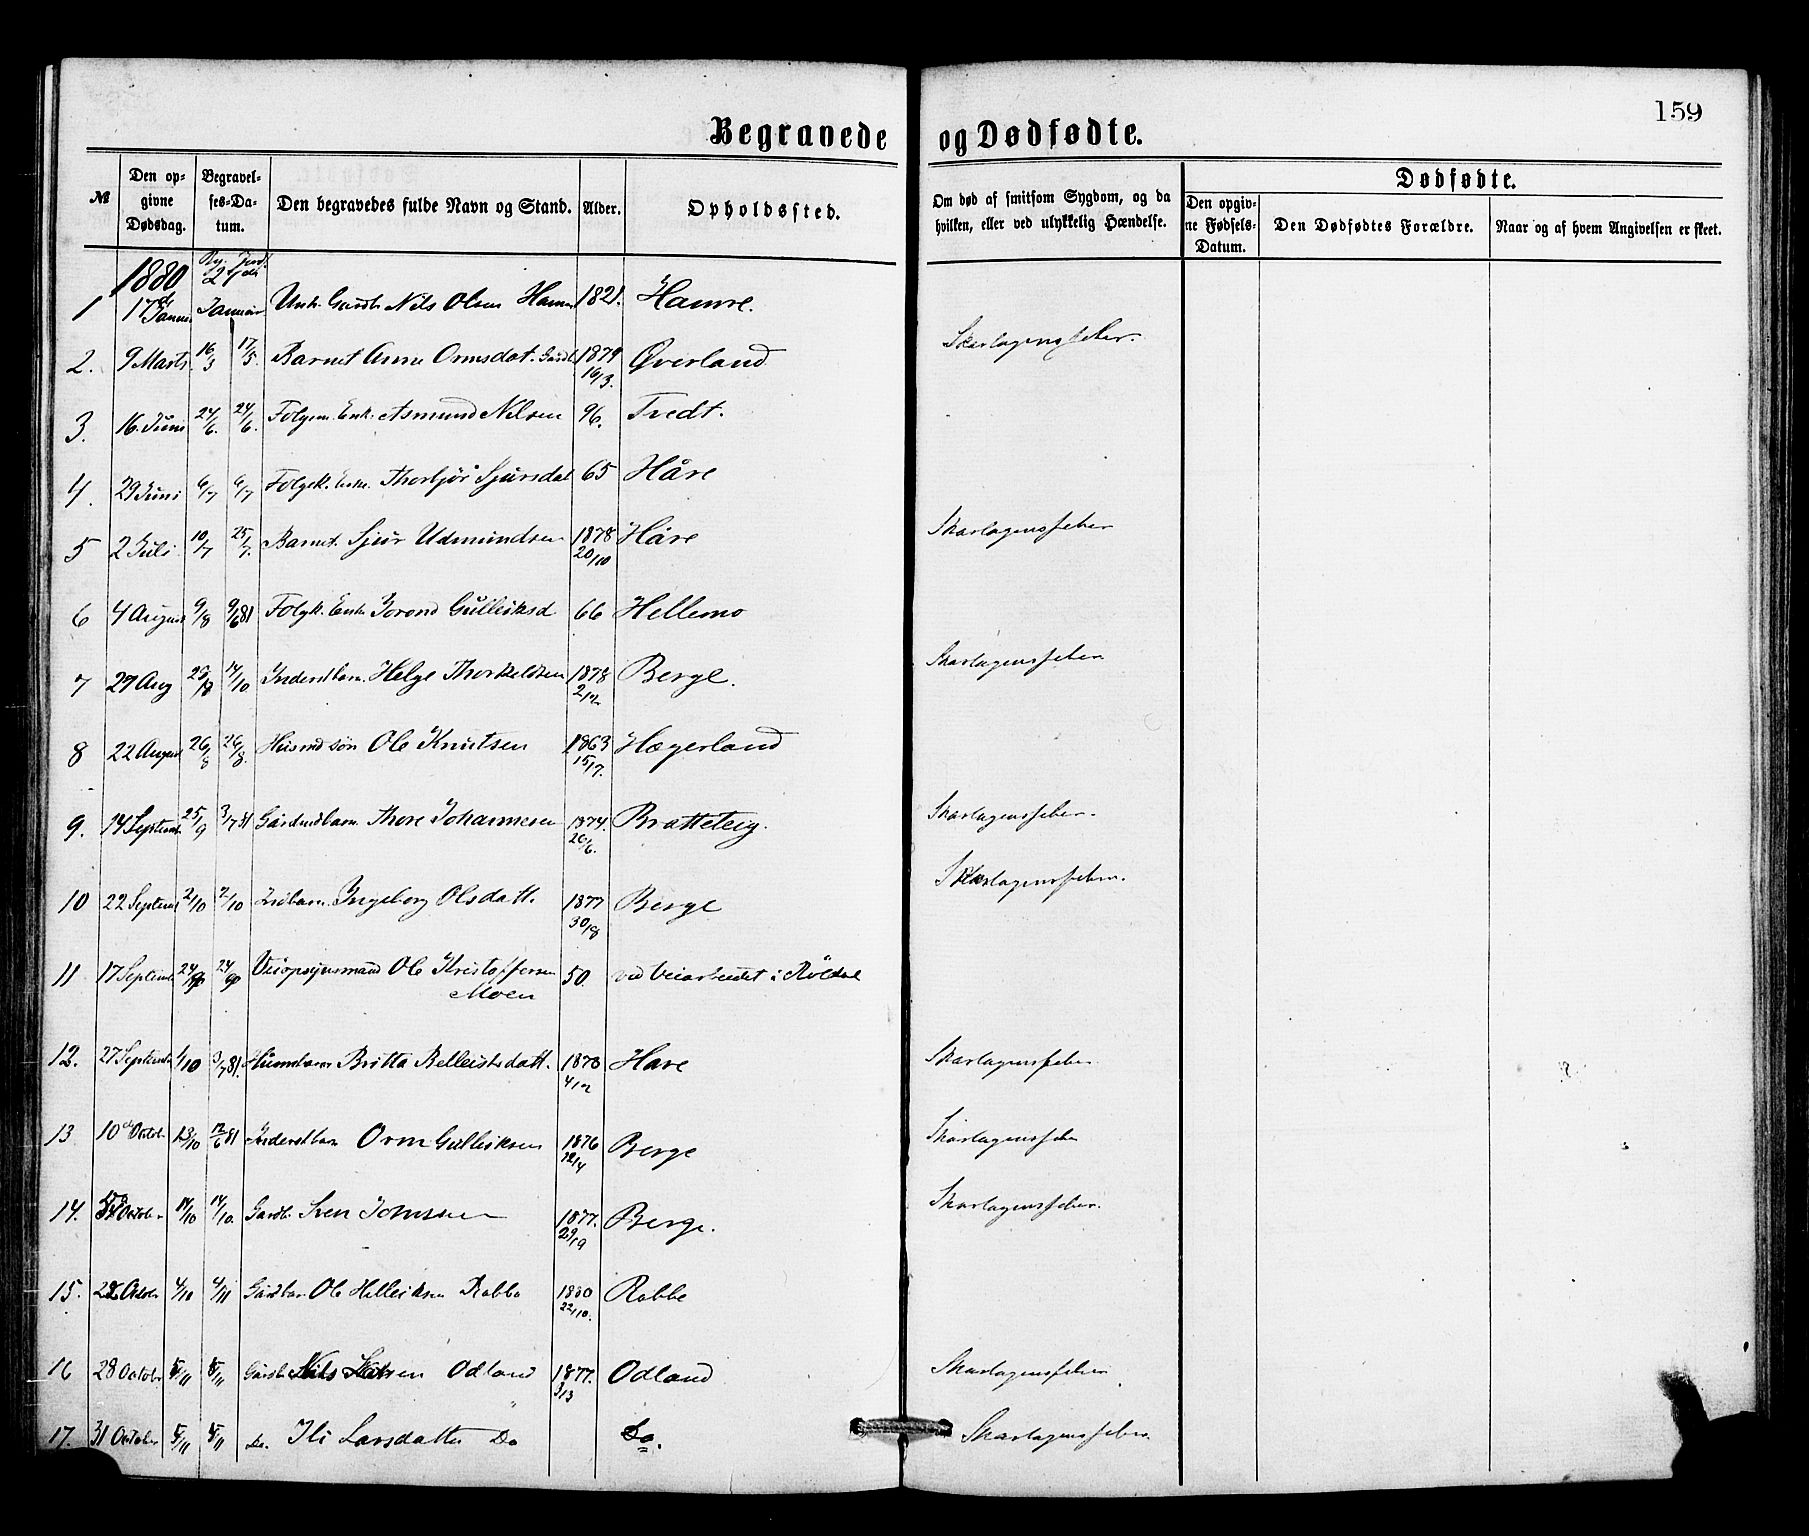 159
Begravede og Dødfødte.
№ Den opgivne Dødsdag. Begravelses-Datum. Den begravedes fulde Navn og Stand. Alder. Opholdssted. Om død af smitsom Sygdom, og da hvilken, eller ved ulykkelig Hændelse. Dødfødte.
Den opgivne Fødsels-Datum. Den Dødfødtes Forældre. Naar og af hvem Angivelsen er skeet.
1880
1 17de Januar Nils Olsen 1821. Hamre.
2. 9 Marts 16/3 17/5. Barnet Anne Ormsdat. 1879 16/3. Øverland Skarlagensfeber.
3. 16. Juni 24/6. 24/6. Asmund Nilsen 96. Tredt.
4. 29 Juni 6/7 6/7 Thorbjør Sjursdat 65 Håre
5 2 Juli 10/7 25/7. Barnet Sjur Udmundsen 1878 20/10 Håre Skarlagensfeber
6 4 August 9/8 9/6 81 Folgk. Enke Jorond Gulleiksd 66 Hellemo
7 27 Aug 28/8 14/10 Inderstbarn. Helge Thorkeldsen 1878 2/12 Berge. Skarlagensfeber
8 22 August 26/8 26/8. Husmd søn Ole Knutsen 1863 15/7. Hægerland
9. 14 Septemb 25/9 3/7 81 Gårdmdbarn Thore Johannesen 1874. 26/6. Bratteteig. Skarlagensfeber.
10 22 Septemb 2/10 2/10 Ingeborg Olsdatt. 1877 30/8 Berge Skarlagensfeber.
11 17 Septemb 24/9 24/9 Veiopsynsmand Ole Kristoffersen 50. ved Veiarbeidet i Röldal
Moen
12. 27 Septemb 4/10 3/7 81. Husmbarn Britta Helleiksdatt. 1878 4/12 Håre Skarlagensfeber
13 10de Octob 13/10 12/6 81 Inderstbarn Orm Gulleiksen 1876 12/4 Berge Skarlagensfeber
14. October 14/10 14/10. Gardb. Sven Johnssen 1877. 29/9 Berge. Skarlagensfeber.
15. 22 Octobr 4/10 4/11 Gårdbarn Ole Helleiksen Rabbe 1880 22/10. Rabbe
16 28 Octobr 5/11 5/11 Gårdb Nils Larsen Odland 1877. 3/3 Odland Skarlagensfeber
17. 31 October 5/11 5/11 Do. Larsdatter Do Do. Skarlagensfeber